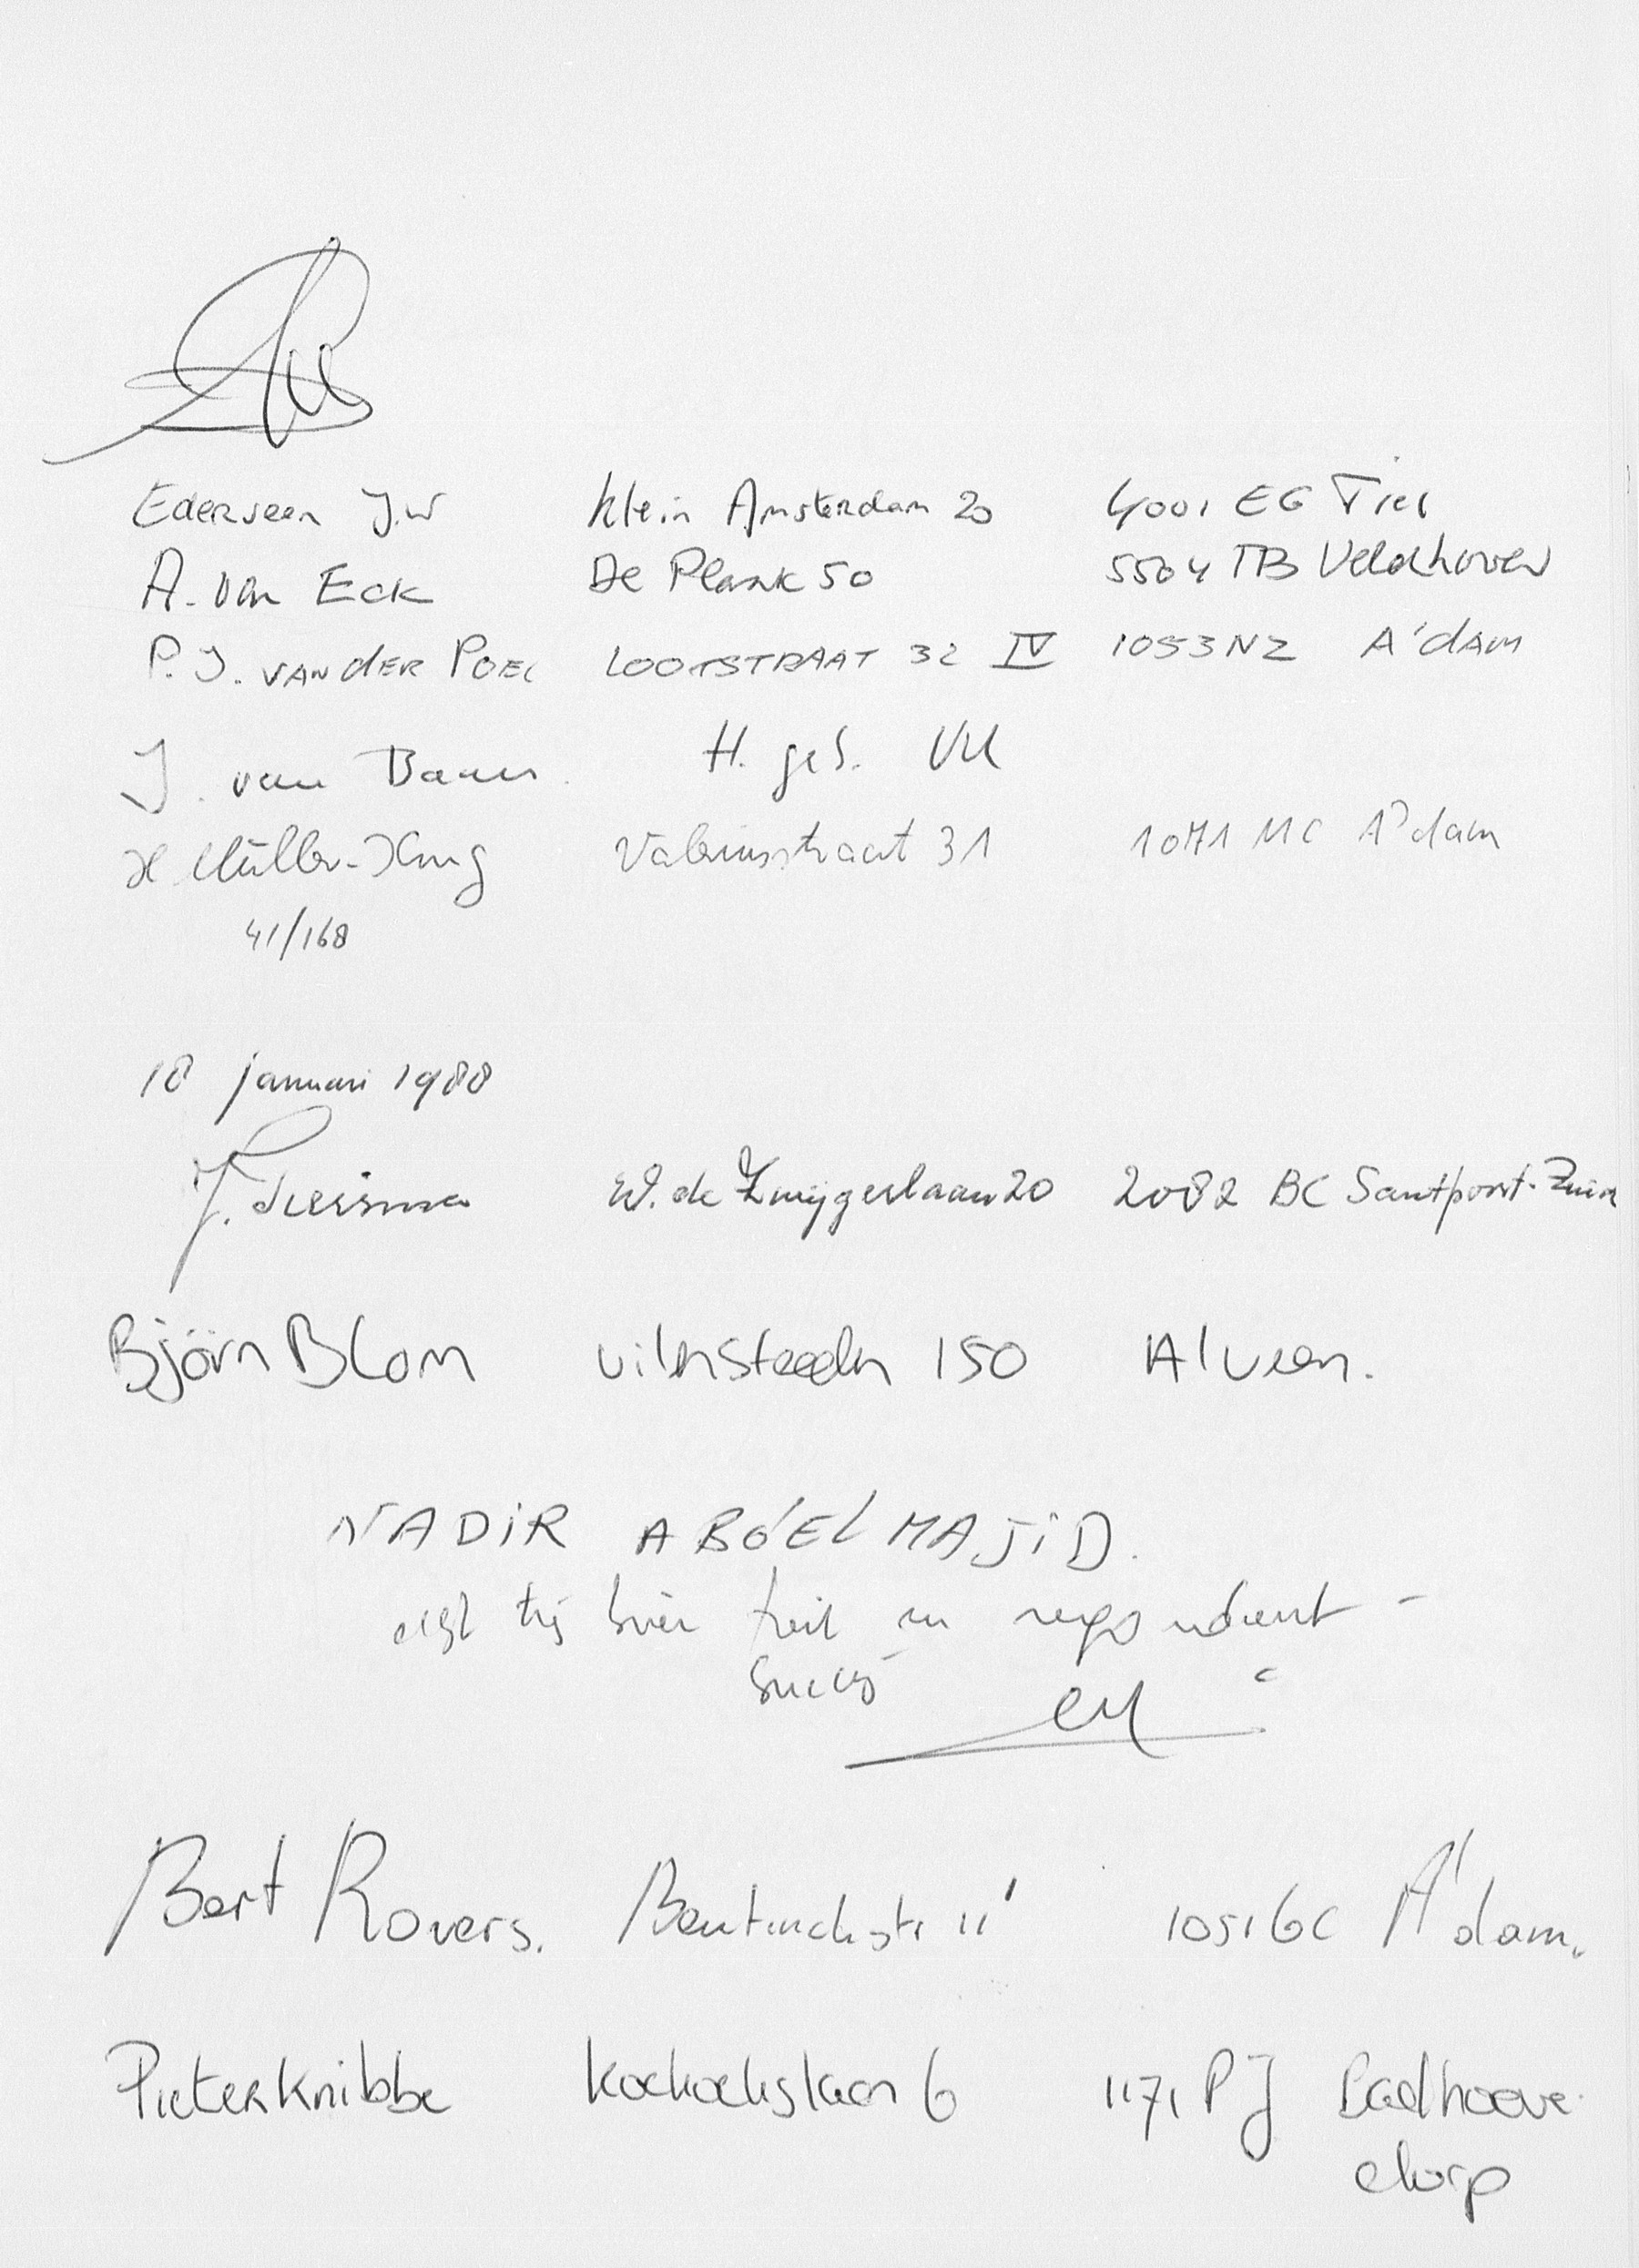 Ederveen J.W Klein Amsterdam 20 4001 EG Tiel
A. van Eck De Plank 50 5504 TB Veldhoven
P. J. VAN dER POEL LOOTSSTRAAT 32 IV 1053 NZ A'dAM
J. van H. ges. VU
H. Müller- Valeriusstraat 31 1071 MC A'dam
41/168
18 januari 1988
J. W. de Zwijgerlaan 20 2082 BC Santpoort-Zuid
Björn BLom 150 A'veen.
NADiR ABO'EL MAJiD.
succes
Bert Rovers. Bentinckstr 11' 1051 GC A'dam.
Pieter Knibbe Koekoekslaan 6 1171 PJ Badhoeve
dorp